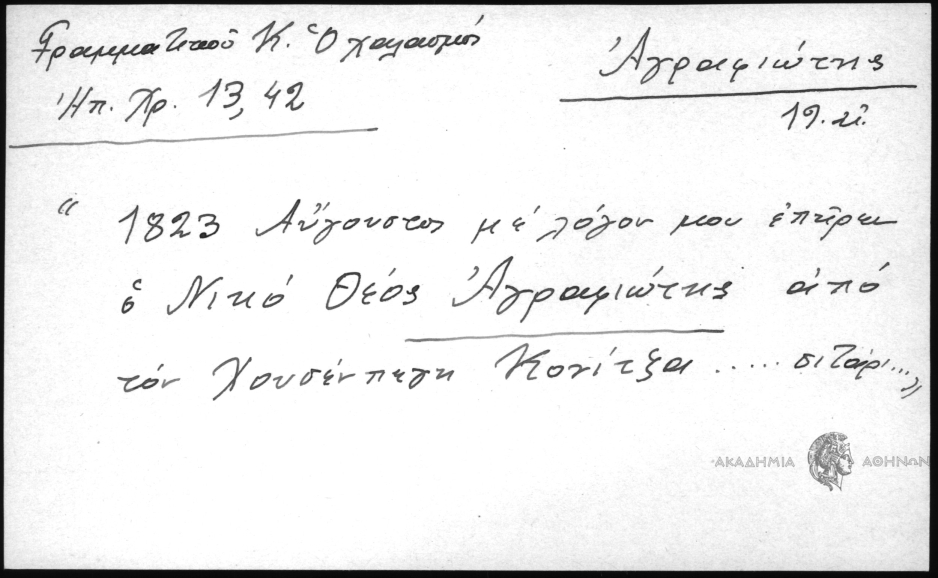 Γραμματικοῦ Κ. Ὁ χαλασμός
Ἠπ. Χρ. 13, 42
Ἀγραφιώτης
19. αἰ.
“ 1823 Αὔγουστος μέ λόγον μου ἐπῆρεν
ὁ Νικό Θέος Ἀγραφιώτης ἀπό
τόν Χουσέν πεγη Κονίτζα ..... σιτάρι... ”
ΑΚΑΔΗΜΙΑ ΑΘΗΝΩΝ